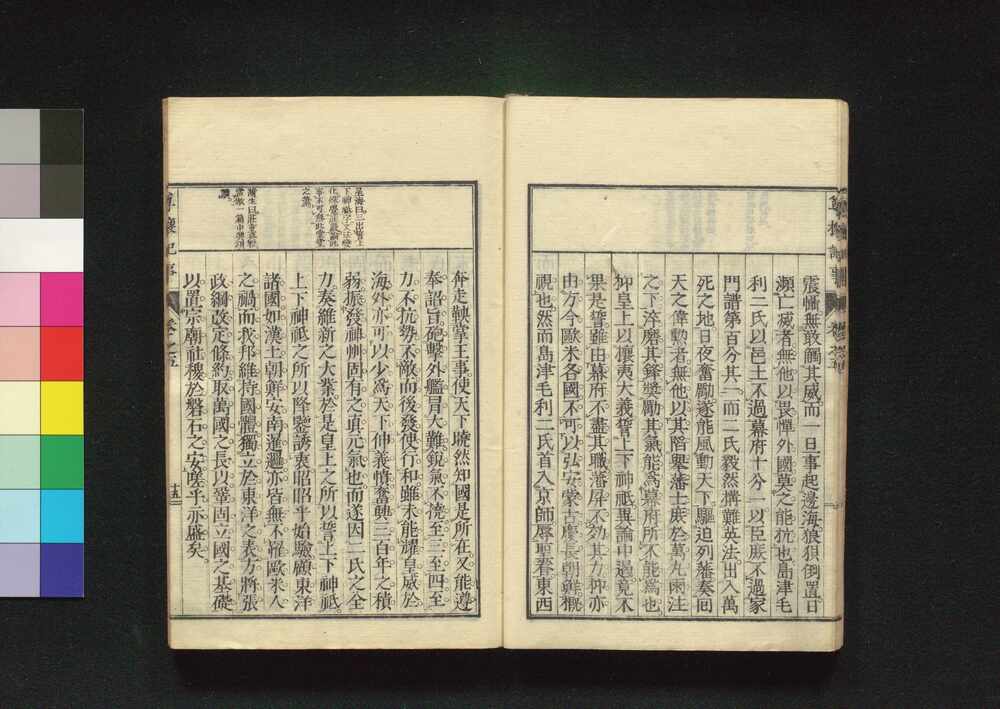 震慴無敢觸其威而一旦事起邊海狼狽倒置日
瀕亡滅者無他以畏憚外國莫之能抗也島津毛
利二氏以邑土不過幕府十分一以臣庶不過家
門譜第百分其一而二氏毅然攘難英法出入萬
死之地日夜奮勵遂能風動天下驅迫列藩奏回
天之偉勳者無他以其陷舉藩士庶於萬丸雨注
之下淬磨其鋒奬勵其氣能爲幕府所不能爲也
抑皇上以攘夷大義誓上下神祇異論中遏竟不
果是誓雖由幕府不盡其職藩屏不効其力抑亦
由方今歐米各國不可以弘安蒙古慶長朝鮮概
視也然而島津毛利二氏首入京師辱聖眷東西
奔走鞅掌王事使天下曉然知國是所在又能遵
奉詔旨砲擊外艦冒大難銳氣不撓至三至四至
力不抗勢不敵而後發使行和雖未能耀皇威於
海外亦可以少爲天下伸義憤奮興三百年之積
弱振發神州固有之眞元氣也而遂因二氏之全
力奏維新之大業於是皇上之所以誓上下神祇
上下神祇之所以降鑒誘衷昭昭乎始驗顧東洋
諸國如漢土朝鮮安南暹邏亦皆無不罹歐米人
之禍而我邦維持國體獨立於東洋之表方將張
政綱改定條約取萬國之長以鞏固立國之基礎
以置宗廟社稷於磐石之安嗟乎亦盛矣
尊攘紀事
卷之五
十五